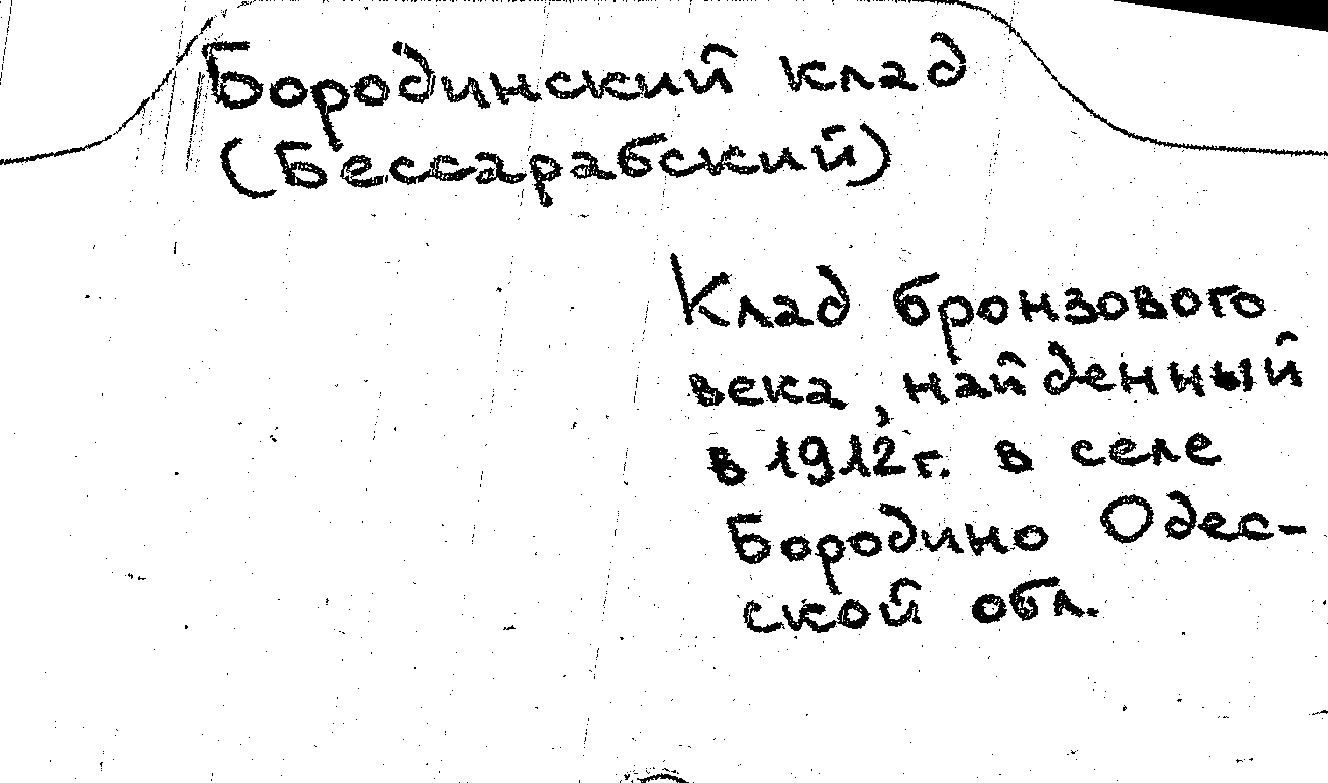 Бородинский клад
(Бессарабский)
Клад бронзового
века, найденный
в 1912г. в селе
Бородино Одес-
ской обл.